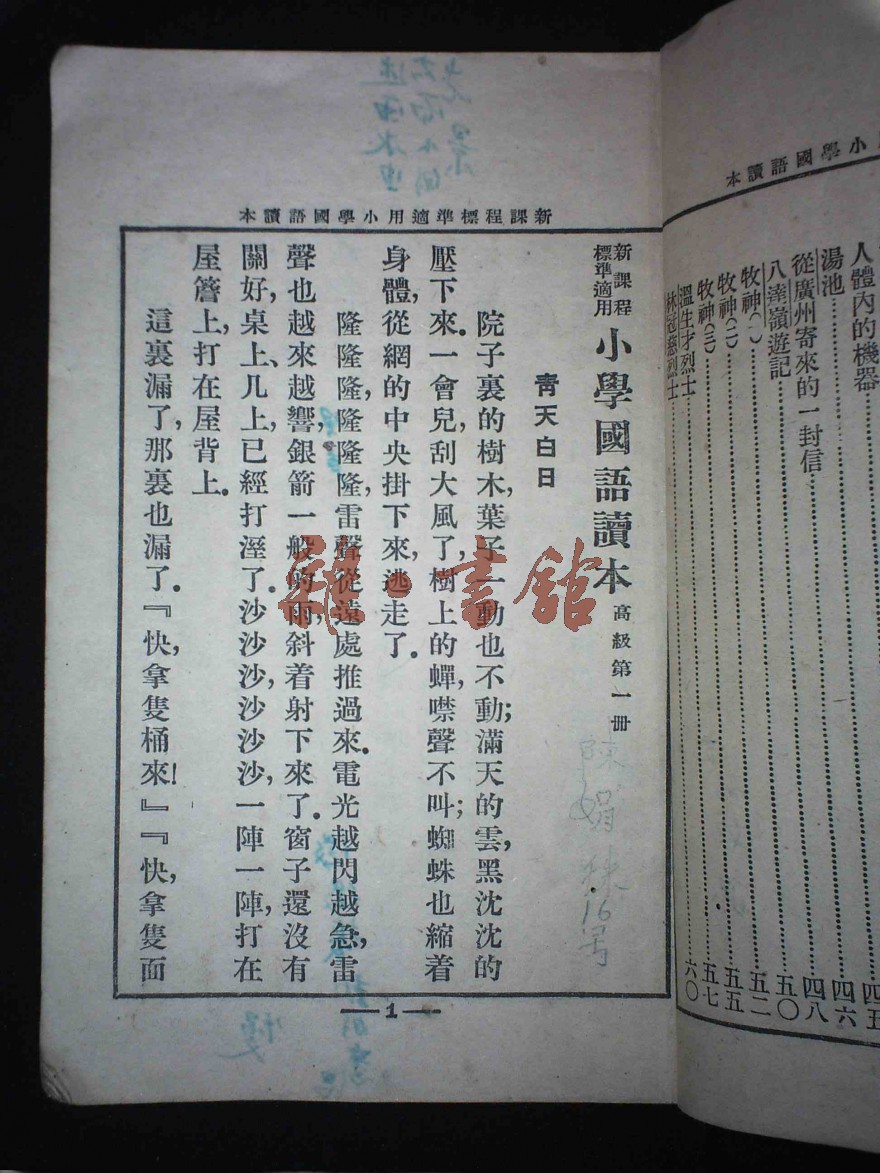 本讀語國學小用適準標程課新
新課程
標準適用
小學國語讀本 高級第一冊
青天白日
院子裏的樹木,葉子一動也不動;滿天的雲,黑沈沈的
壓下來。一會兒,刮大風了,樹上的蟬,噤聲不叫;蜘蛛也縮着
身體,從網的中央掛下來,逃走了。
隆隆隆,隆隆隆,雷聲從遠處推過來。電光越閃越急,雷
聲也越來越響,銀箭一般的雨,斜着射下來了。窗子還沒有
關好,桌上、几上,已經打溼了。沙沙沙,沙沙沙,一陣一陣,打在
屋簷上,打在屋背上。
這裏漏了,那裏也漏了。『快,拿隻桶來!』『快,拿隻面
—1—
陳娟
16号
雜·書館
本讀語國學小
人體內的機器 四五
湯池 四六
從廣州寄來的一封信 四八
八達嶺遊記 五〇
牧神(一) 五二
牧神(二) 五五
牧神(三) 五七
溫生才烈士 六〇
林冠慈烈士